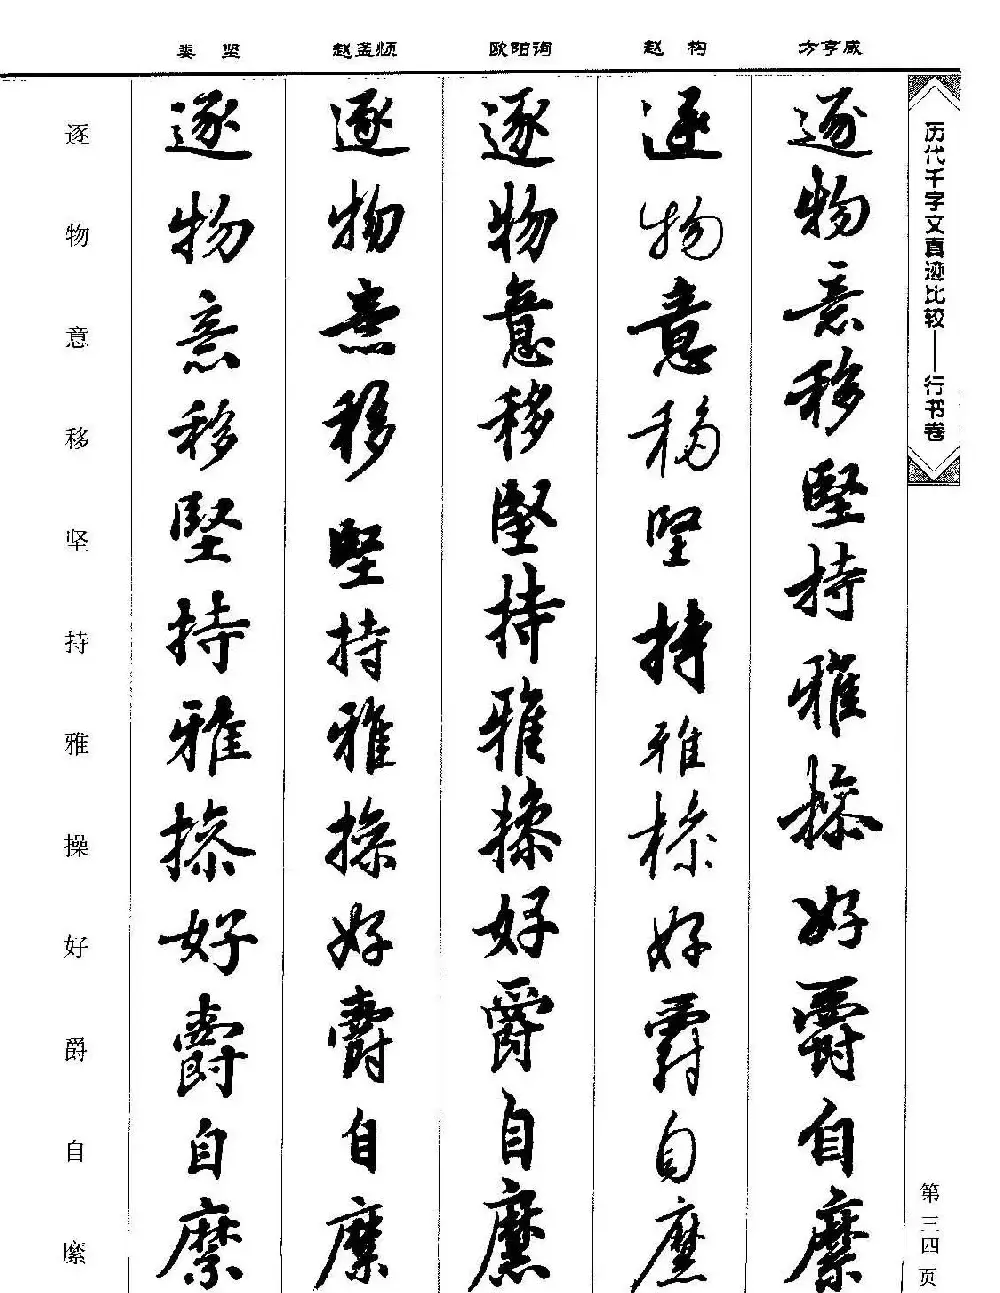 娄 坚 赵孟頫 欧阳询 赵 构 方亨咸
历代千字文真迹比较——行书卷
逐 逐 逐 逐 逐 逐
物 物 物 物 物 物
意 意 意 意 意 意
移 移 移 移 移 移
坚 堅 堅 堅 堅 堅
持 持 持 持 持 持
雅 雅 雅 雅 雅 雅
操 操 操 操 操 操
好 好 好 好 好 好
爵 爵 爵 爵 爵 爵
自 自 自 自 自 自
縻 縻 縻 縻 縻 縻
第三四页